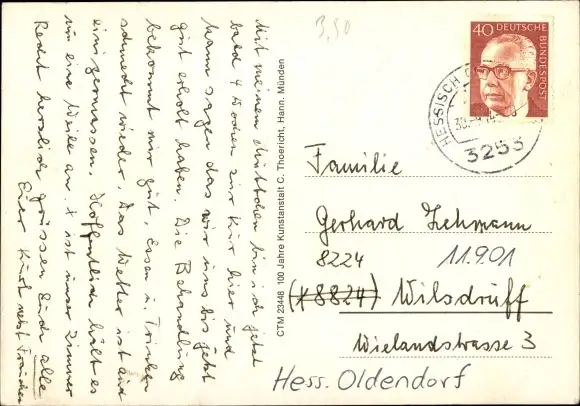 Mit meinem Muttchen bin ich jetzt
bald 4 Wochen zur Kur hier und
kann sagen das wir uns bis jetzt
gut erholt haben. Die Behandlung
bekommt mir gut, Essen u. Trinken
schmeckt wieder. Das Wetter ist auch
einigermassen. Hoffentlich hält es
nu eine Weile an. X ist unser Zimmer
Recht herzliche grüssen Euch alle
Euer Kurt nebst
CTM 23448 100 Jahre Kunstanstalt C. Thoericht, Hann. Münden
3,50
40 DEUTSCHE BUNDESPOST
HESSISCH
3253
Familie
Gerhard Lehmann
8224 11.9.01
(X 8824) Wilsdruff
Wielandstrasse 3
Hess. Oldendorf